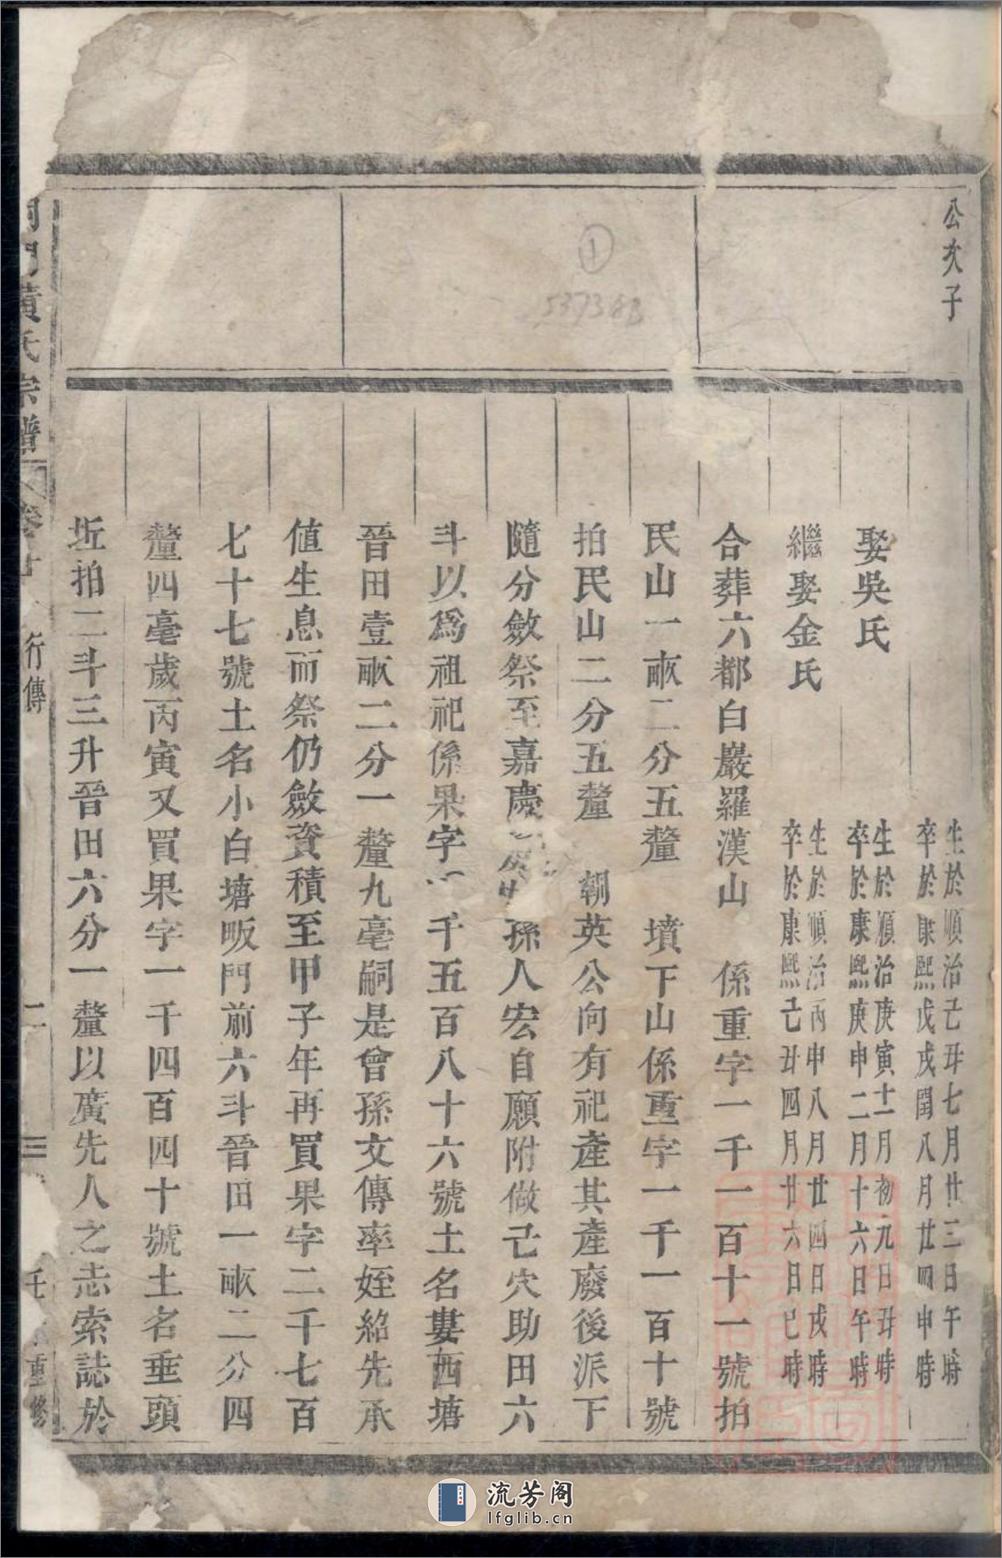 公次子
生於順治己丑七月廿三日午時
卒於康熙戊戌閏八月廿四申時
娶吳氏
生於順治庚寅十一月初九日丑時
卒於康熙庚申二月十六日午時
繼娶金氏
生於順治丙申八月廿四日戌時
卒於康熙己丑四月廿六日巳時
合葬六都白巖羅漢山 係重字一千一百十一號拍
民山一畝二分五釐 墳下山係重字一千一百十號
拍民山二分五釐 朝英公向有祀產其產廢後派下
隨分斂祭至嘉慶 孫人宏自願附做己穴助田六
斗以為祖祀係果字 千五百八十六號土名婁西塘
晉田壹畝二分一釐九毫嗣是曾孫文傳率姪紹先承
值生息而祭仍斂資積至甲子年再買果字二千七百
七十七號土名小白塘畈門前六斗晉田一畝二分四
釐四毫歲丙寅又買果字一千四百四十號土名垂頭
坵拍二斗三升晉田六分一釐以廣先人之志索誌於
黃氏宗譜 行傳 二 重修
①
53738B
流芳阁
lfglib.cn